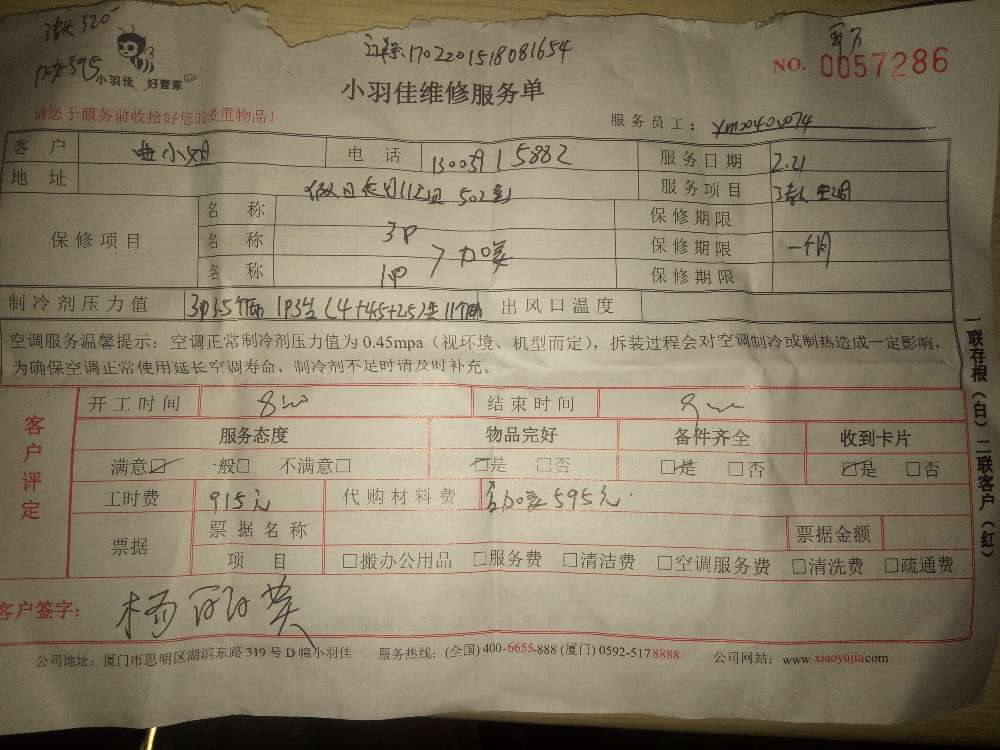 清洗320
加氨595
小羽佳 好管家
1702201518081654
NO. 0057286
小羽佳维修服务单
请您于服务前收拾好您的贵重物品!
服务员工: xm00400074
客户 电话 服务日期 2.21
地址 502室 服务项目 清洗空调
保修项目 名称 保修期限
名称 3P 保修期限 一个月
名称 1P 保修期限
制冷剂压力值 出风口温度
空调服务温馨提示:空调正常制冷剂压力值为0.45mpa(视环境、机型而定),拆装过程会对空调制冷或制热造成一定影响,
为确保空调正常使用延长空调寿命,制冷剂不足时请及时补充。
客户评定
开工时间 结束时间
服务态度 物品完好 备件齐全 收到卡片
满意□ 一般□ 不满意□ □是 □否 □是 □否 □是 □否
工时费 915元 代购材料费 595元
票据 票据名称 票据金额
项目 □搬办公用品 □服务费 □清洁费 □空调服务费 □清洗费 □疏通费
客户签字:
公司地址:厦门市思明区湖滨东路319号D幢小羽佳 服务热线:(全国)400-6655-888 (厦门)0592-5178888 公司网站:www.xiaoyujia.com
一联存根(白)二联客户(红)